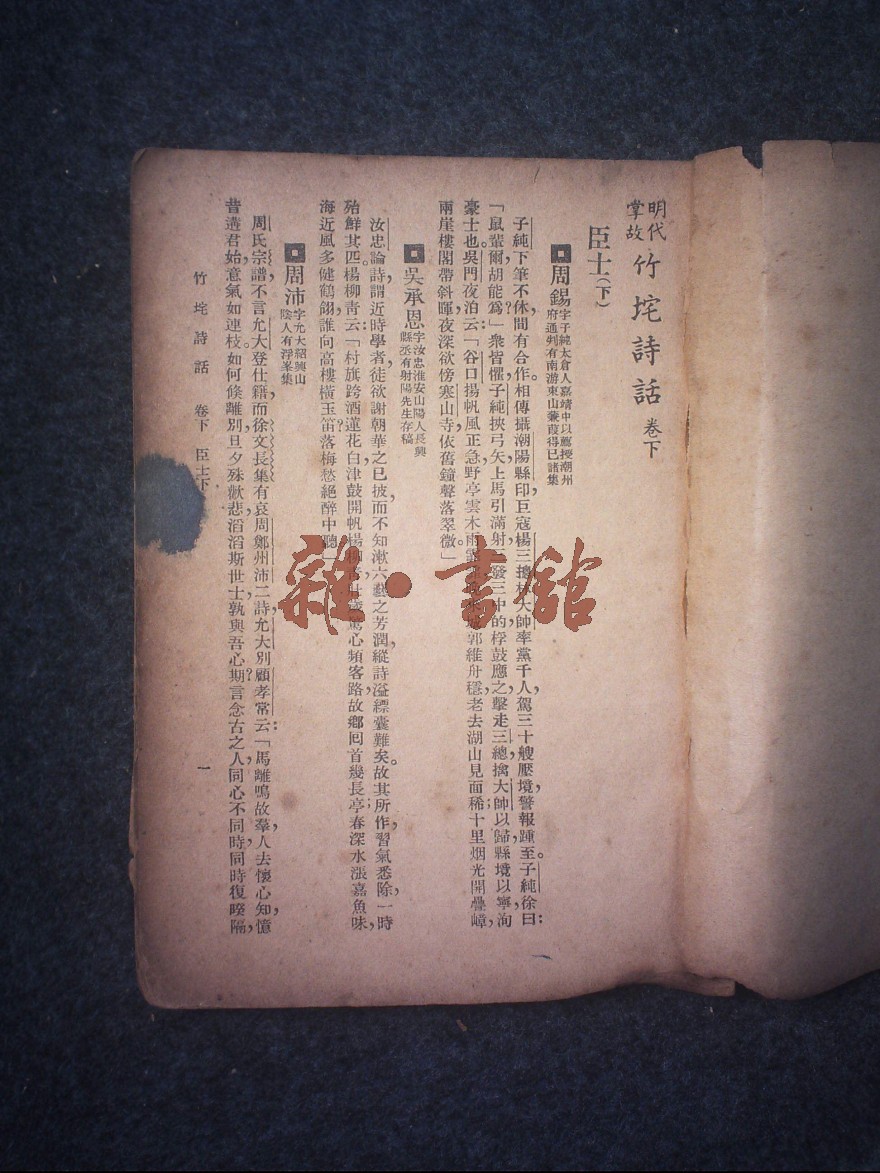 明代掌故 竹垞詩話 卷下
臣士(下)
周錫 字子純太倉人嘉靖中以薦授潮州府通判有南游東山蒹葭得已諸集
子純下筆不休,間有合作。相傳攝潮陽縣印,巨寇楊三總林大帥率黨千人,駕三十艘壓境,警報踵至。子純徐曰:
「鼠輩爾胡能爲?」衆皆懼,子純挾弓矢上馬引滿射,三發三中的,桴鼓應之,擊走三總,擒大帥以歸,縣境以寧,洵
豪士也。吳門夜泊云:「谷口揚帆風正急,野亭雲木雨霏郭維舟穩,老去湖山見面稀;十里烟光開疊嶂,
兩崖樓閣帶斜暉,夜深欲傍寒山寺,依舊鐘聲落翠微。」
吳承恩 字汝忠淮安山陽人長興縣丞有射陽先生存稿
汝忠論詩,謂近時學者,徒欲謝朝華之已披,而不知漱六藝之芳潤,縱詩溢縹囊難矣。故其所作,習氣悉除,一時
殆鮮其匹。楊柳青云:「村旗跨酒蓮花白,津鼓開帆楊柳心頻客路,故鄉回首幾長亭;春深水漲嘉魚味,
海近風多健鶴翎,誰向高樓橫玉笛?落梅愁絕醉中聽。」
周沛 字允大紹興山陰人有浮峯集
周氏宗譜不言允大登仕籍,而徐文長集有哀周鄭州沛二詩,允大別顧孝常云:「馬離鳴故羣,人去懷心知,憶
昔遘君始,意氣如連枝。如何倏離別,旦夕殊歡悲,滔滔斯世士,孰與吾心期?言念古之人,同心不同時,同時復暌隔,
竹垞詩話 卷下 臣士下
一
雜·書館